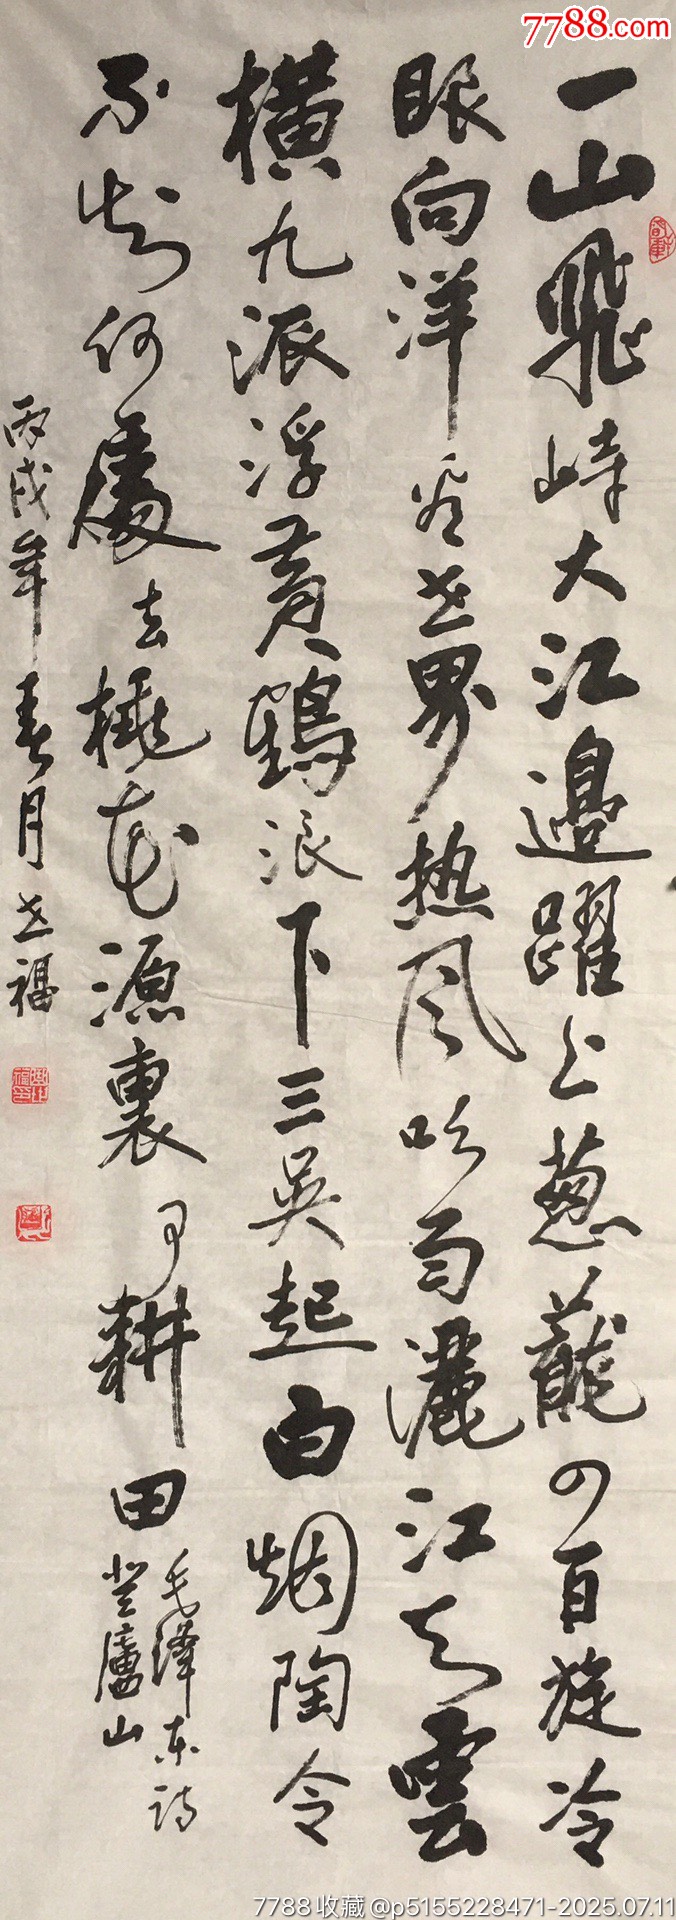 7788.com
一山飛峙大江邊躍上葱蘢四百旋冷
眼向洋看世界热风吹雨灑江天雲
橫九派浮黄鶴浪下三吴起白烟陶令
不知何處去桃花源裏可耕田
毛澤东詩
登廬山
丙戌年春月世福
7788收藏@p5155228471-2025.07.11